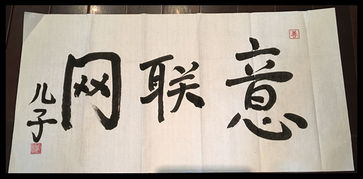 意联网
儿子